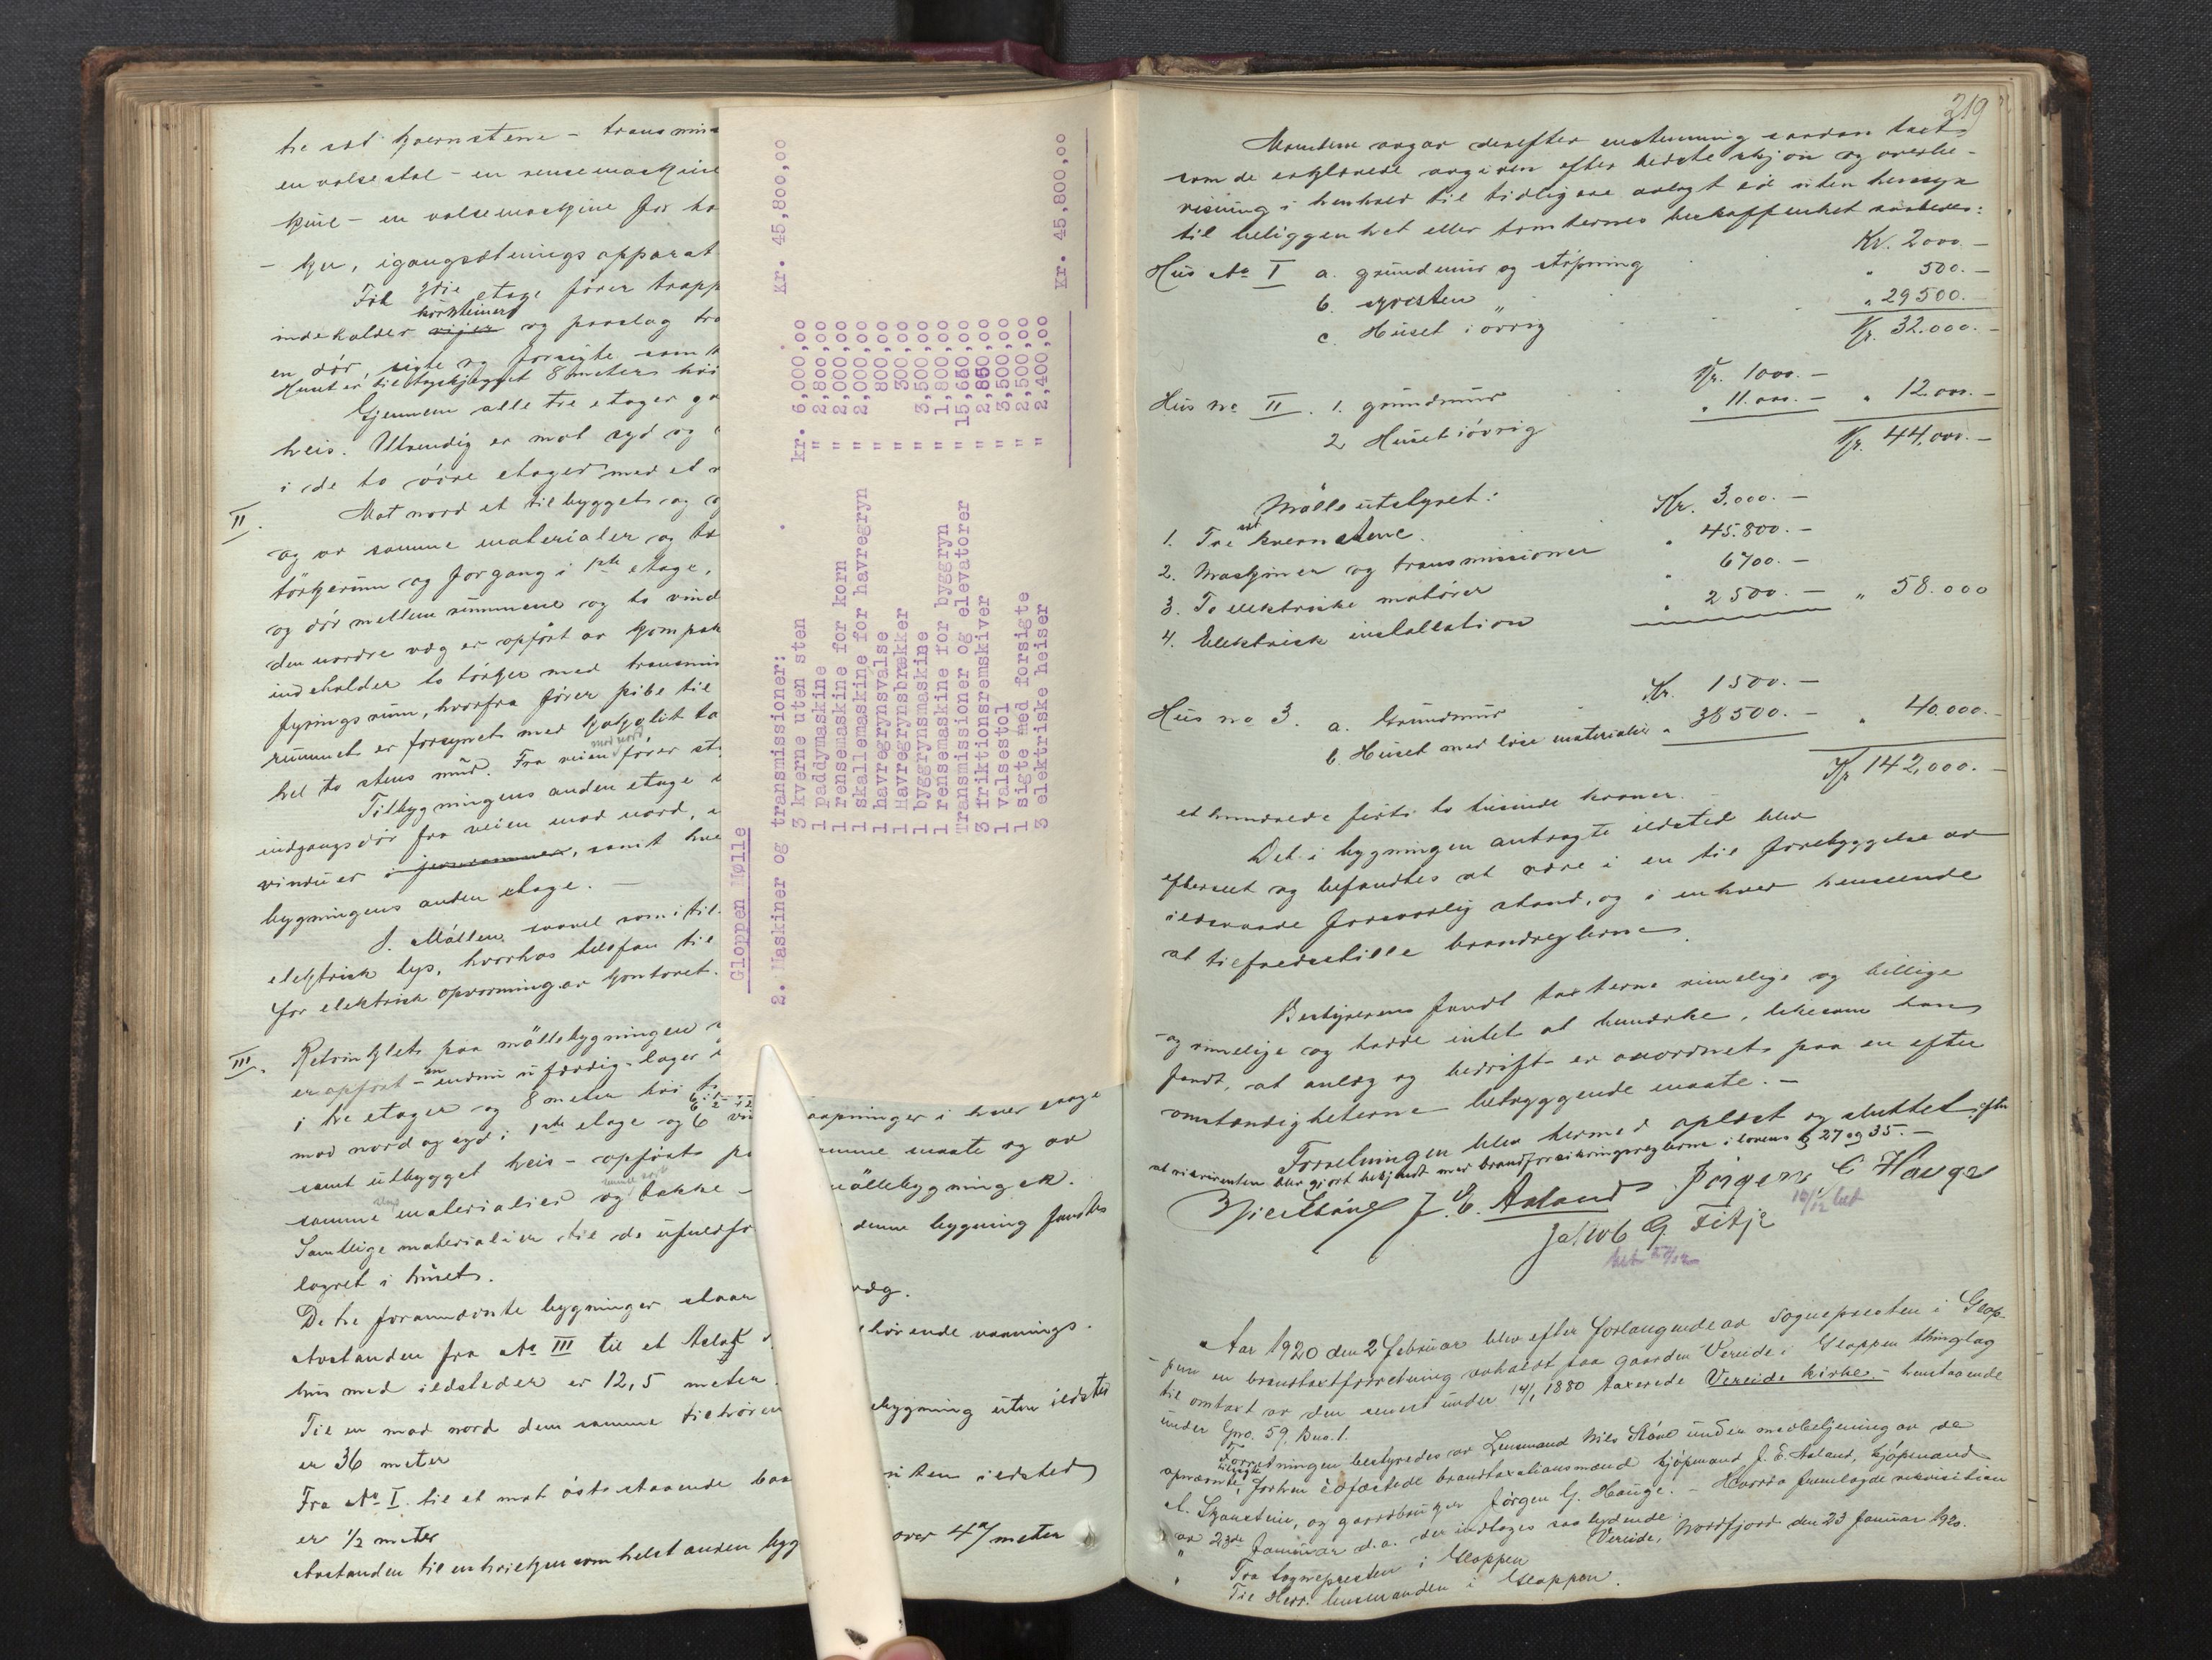 tre sæt kvernstene - transmis
en valsestol - en rensemaskine
kine - en valsemaskine for ha
ker, igangsætnings apparat
Til 3die etage fører trapp
kornbeinger
indeholder vijer og paaslag tra
en dør, sigte og forsigte som
Huset er til tagskjægget 8 meter høi
Gjennem alle tre etager ga
heis. Utvendig er mot syd og
i de to øvre etager med et
II. Mot nord et tilbygget og
og av samme materialer og ta
törkerum og forgang i 1ste etage,
og dør mellem rummene og to vind
den nordre væg er opført av kompak
indeholder to törker med transmis
fyringsrum, hvorfra fører pibe til
rummet er forsynet med
hel to stens mur. Fra veien mod nord fører
Tilbygningens anden etage
indgangsdør fra veien mod nord,
vinduer i jernrammer, samt
bygningens anden etage. -
I Møllen saavel som i til
elektrisk lys, hvorhos telefon til
for elektrisk opvarming av kontoret.
III. paa møllebygningen
er opført - en endnu ufærdig lager
i tre etager og 8 meter høi
mod nord og syd i 1ste etage og 6 aapninger i hver etage
samt utbygget heis - opført paa samme maate og av
samme slags materialier og takke - møllebygningen.
Samtlige materialier til de denne bygning fandtes
lagret i huset.
De tre forannævnte bygninger staar væg.
Avstanden fra No III til et tilhørende vaanings-
hus med ildsteder er 12,5 meter.
Til en mod nord dem samme tilhøren bygning uten ildsted
er 36 meter
Fra No I til et mot øst staaende uten ildsted
er 1/2 meter
Avstanden til enhvilken som helst anden byg over 4 meter
Gloppen Mølle
2. Maskiner og transmissioner: . kr. 45,800,00
3 kverne uten sten kr. 6,000,00
1 paddymaskine " 2,800,00
1 rensemaskine for korn " 2,000,00
1 skallemaskine for havregryn " 2,000,00
1 havregrynsvalse " 800,00
1 Havregrynsbrækker " 300,00
1 byggrynsmaskine " 3,500,00
1 rensemaskine for byggryn " 1,800,00
Transmissioner og elevatorer " 15,650,00
3 friktionsremskiver " 2,850,00
1 valsestol " 3,500,00
1 sigte med forsigte " 2,500,00
3 elektriske heiser " 2,400,00
kr. 45,800,00
219
Mændene avgav derefter enstemmig saadan takt
som de erklærede avgiven efter bedste skjøn og overbe-
visning i henhold til tidligere avlagt ed uten hensyn
til beliggenhet eller tomternes beskaffenhet saaledes:
Hus No I a. grundmur og støpning Kr. 2000. -
b. syresten " 500. -
c. Huset i øvrig " 29500. -
Kr. 32.000. -
Hus no II. 1. grundmur Kr. 1000. -
2. Huset iøvrig " 11.000. - " 12.000. -
Kr. 44,000. -
Mølleutstyret:
1. Tre sæt kvernstene. Kr. 3.000. -
2. Maskiner og transmissioner " 45.800. -
3. To elektriske motorer " 6700. -
4. Elektrisk installation " 2500. - " 58.000
Hus no 3. a. Grundmur Kr. 1500. -
b. Huset med løse materialier " 38500. - " 40.000. -
Kr 142,000. -
et hundrede førti to tusinde kroner.
Det i bygningen antragte ildsted blev
efterseet og befandtes at være i en til forebyggelse av
ildsvaade forsvarlig stand, og i enhver henseende
at tilfredsstille brandreglerne.
Bestyreren fandt taxterne rimelige og billige
og rimelige og hadde intet at bemærke, likesom han
fandt, at anlæg og bedrift er anordnet paa en efter
omstændigheterne betryggende maate. -
Forretningen blev hermed oplæst og sluttet efter
at rekvirenten blev gjort bekjendt med brandforsikringsreglerne i lovens § 27 og 35. -
J. E. Aaland Jörgen G Hauge
Jakob G. Fitje
Aar 1920 den 2 februar blev efter forlangende av sognepresten i Glop-
pen en brandtaxtforretning avholdt paa gaarden Vereide i Gloppen thinglag
til omtaxt av den senest under 14/1 1880 taxerede Vereide kirke. - henstaaende
under Gno. 59, Bno. 1.
Forretningen bestyredes av Lensmand Nils Støve under medbetjening av de
opnævnte, forhen edfæstede brandtaxationsmænd kjøpmand J. E. Aaland, kjøpmand
A. Skaastein, og gaardbruger Jörgen G. Hauge. - Hvorda fremlagde rekvisition
av 23de Januar d.a. der indtages saa lydende:
" Fra sognepresten i Gloppen Vereide, Nordfjord den 23 Januar 1920.
" Til Herr. lensmanden i Gloppen.